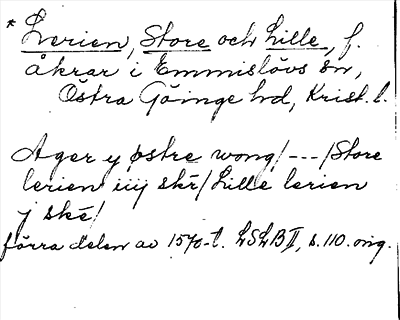 * Lerien, Store och Lille, f.
åkrar i Emmislövs sn,
Östra Göinge hd, Krist. l.
Ager y østre wong/---/Store
lerien iiij skr/Lille lerien
j ske/
förra delen av 1570-t. LSLB II, s. 110. orig.